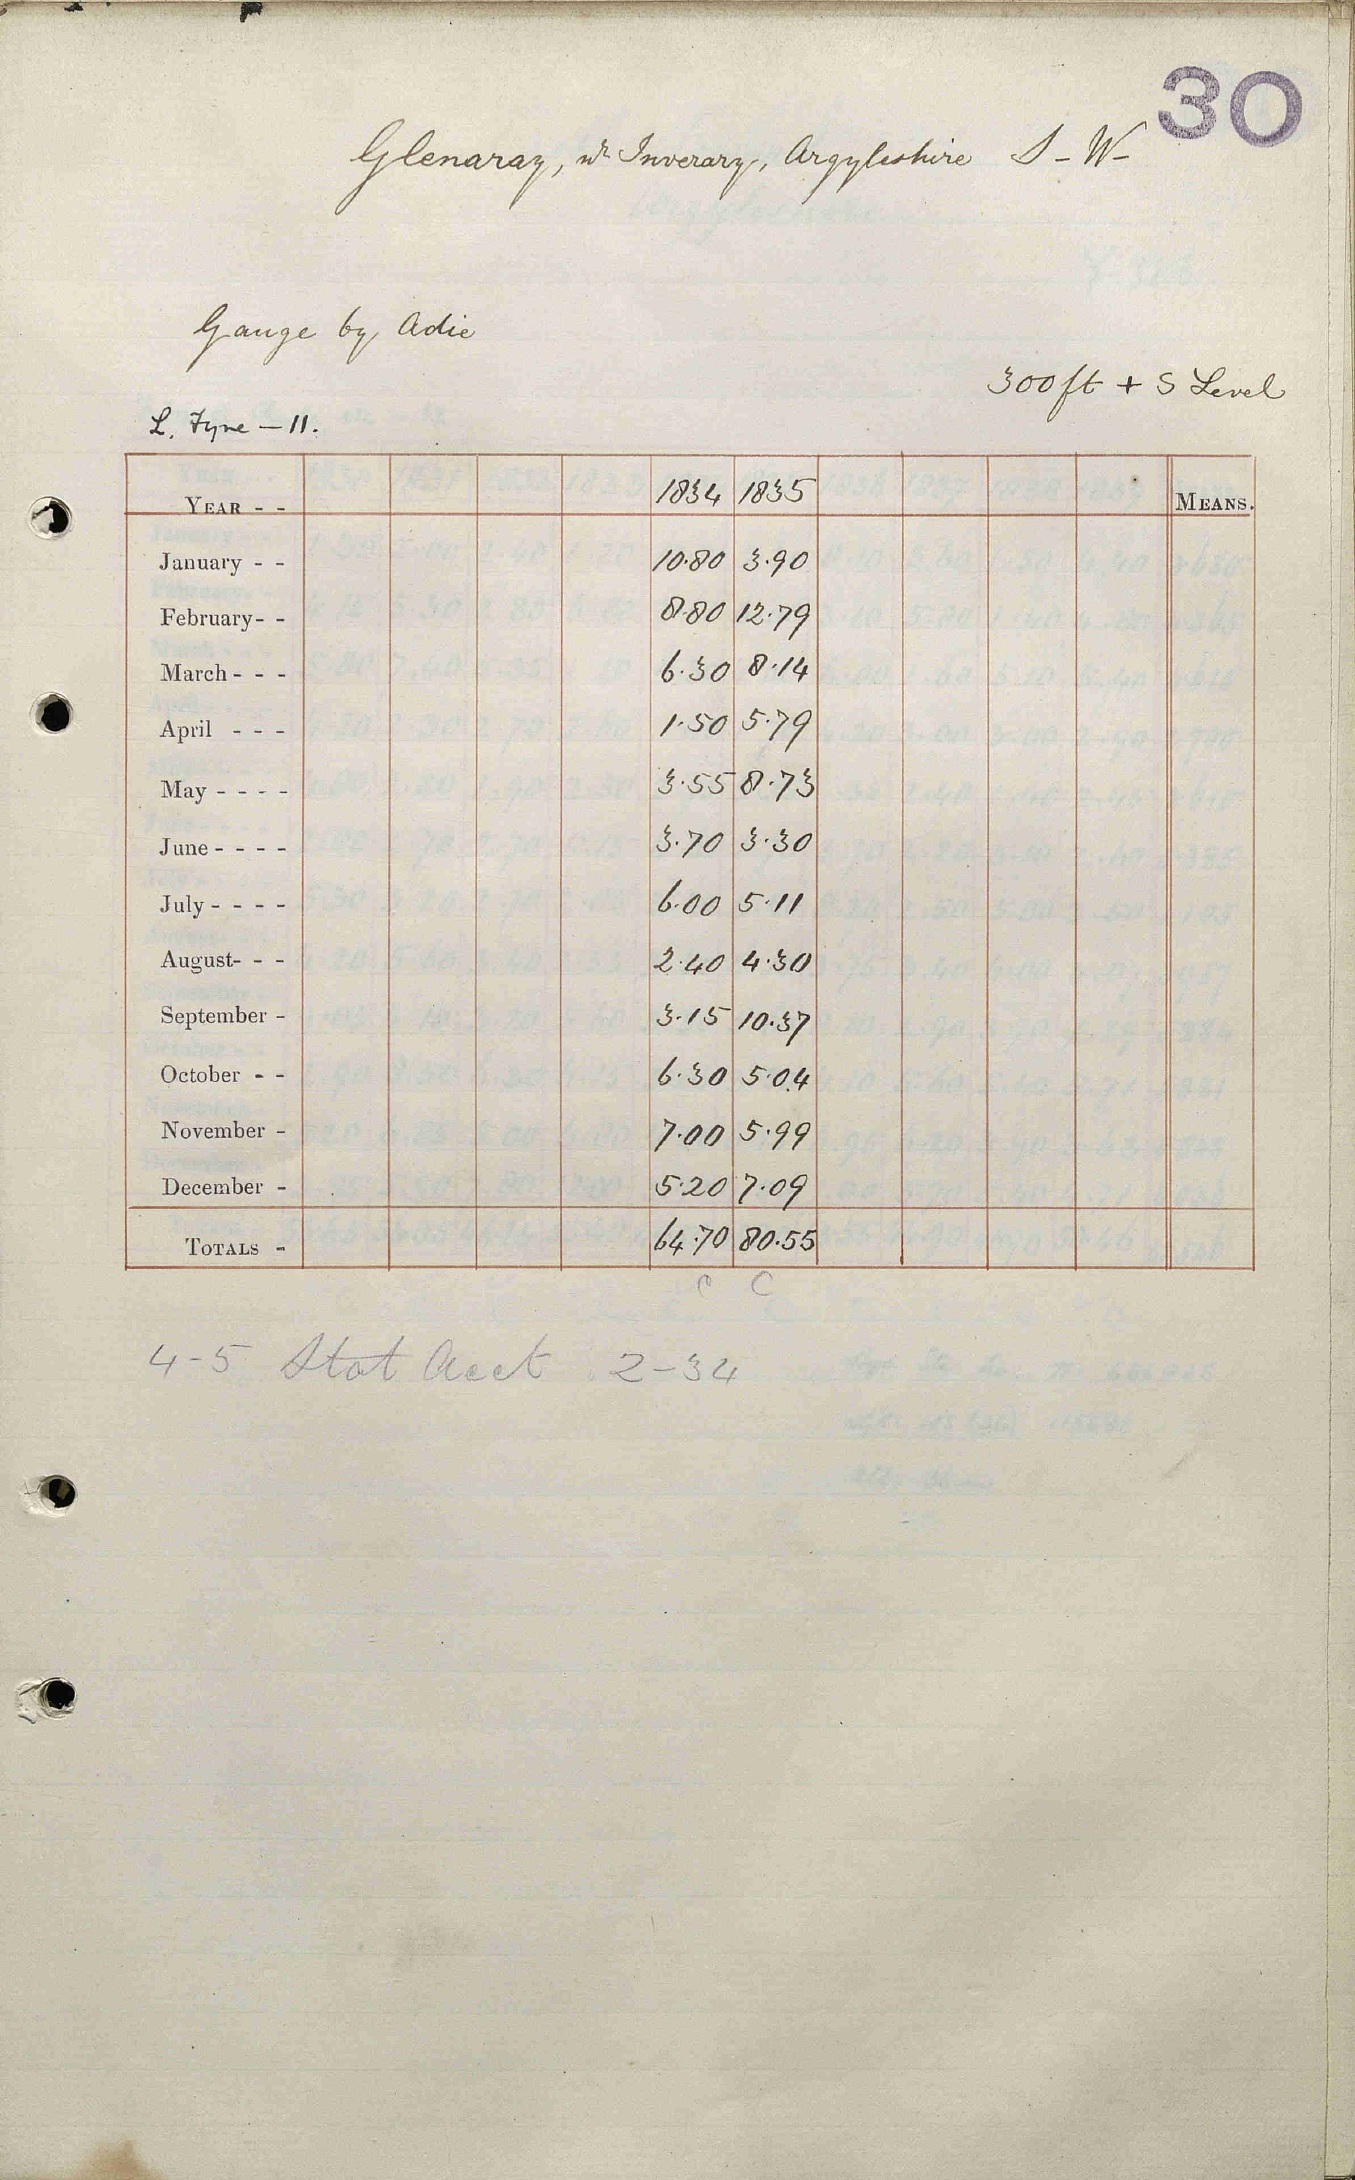 30
Glenaray, nr Inverary, Argyleshire S-W-
Gauge by Adie
300ft + S Level
L. Fyne - 11.
YEAR - - 1834 1835 MEANS.
January - - 10.80 3.90
February - - 8.80 12.79
March - - - 6.30 8.14
April - - - 1.50 5.79
May - - - - 3.55 8.73
June - - - - 3.70 3.30
July - - - - 6.00 5.11
August - - - 2.40 4.30
September - 3.15 10.37
October - - 6.30 5.04
November - 7.00 5.99
December - 5.20 7.09
TOTALS - 64.70 80.55
C C
4-5 Stat Acct 2-34